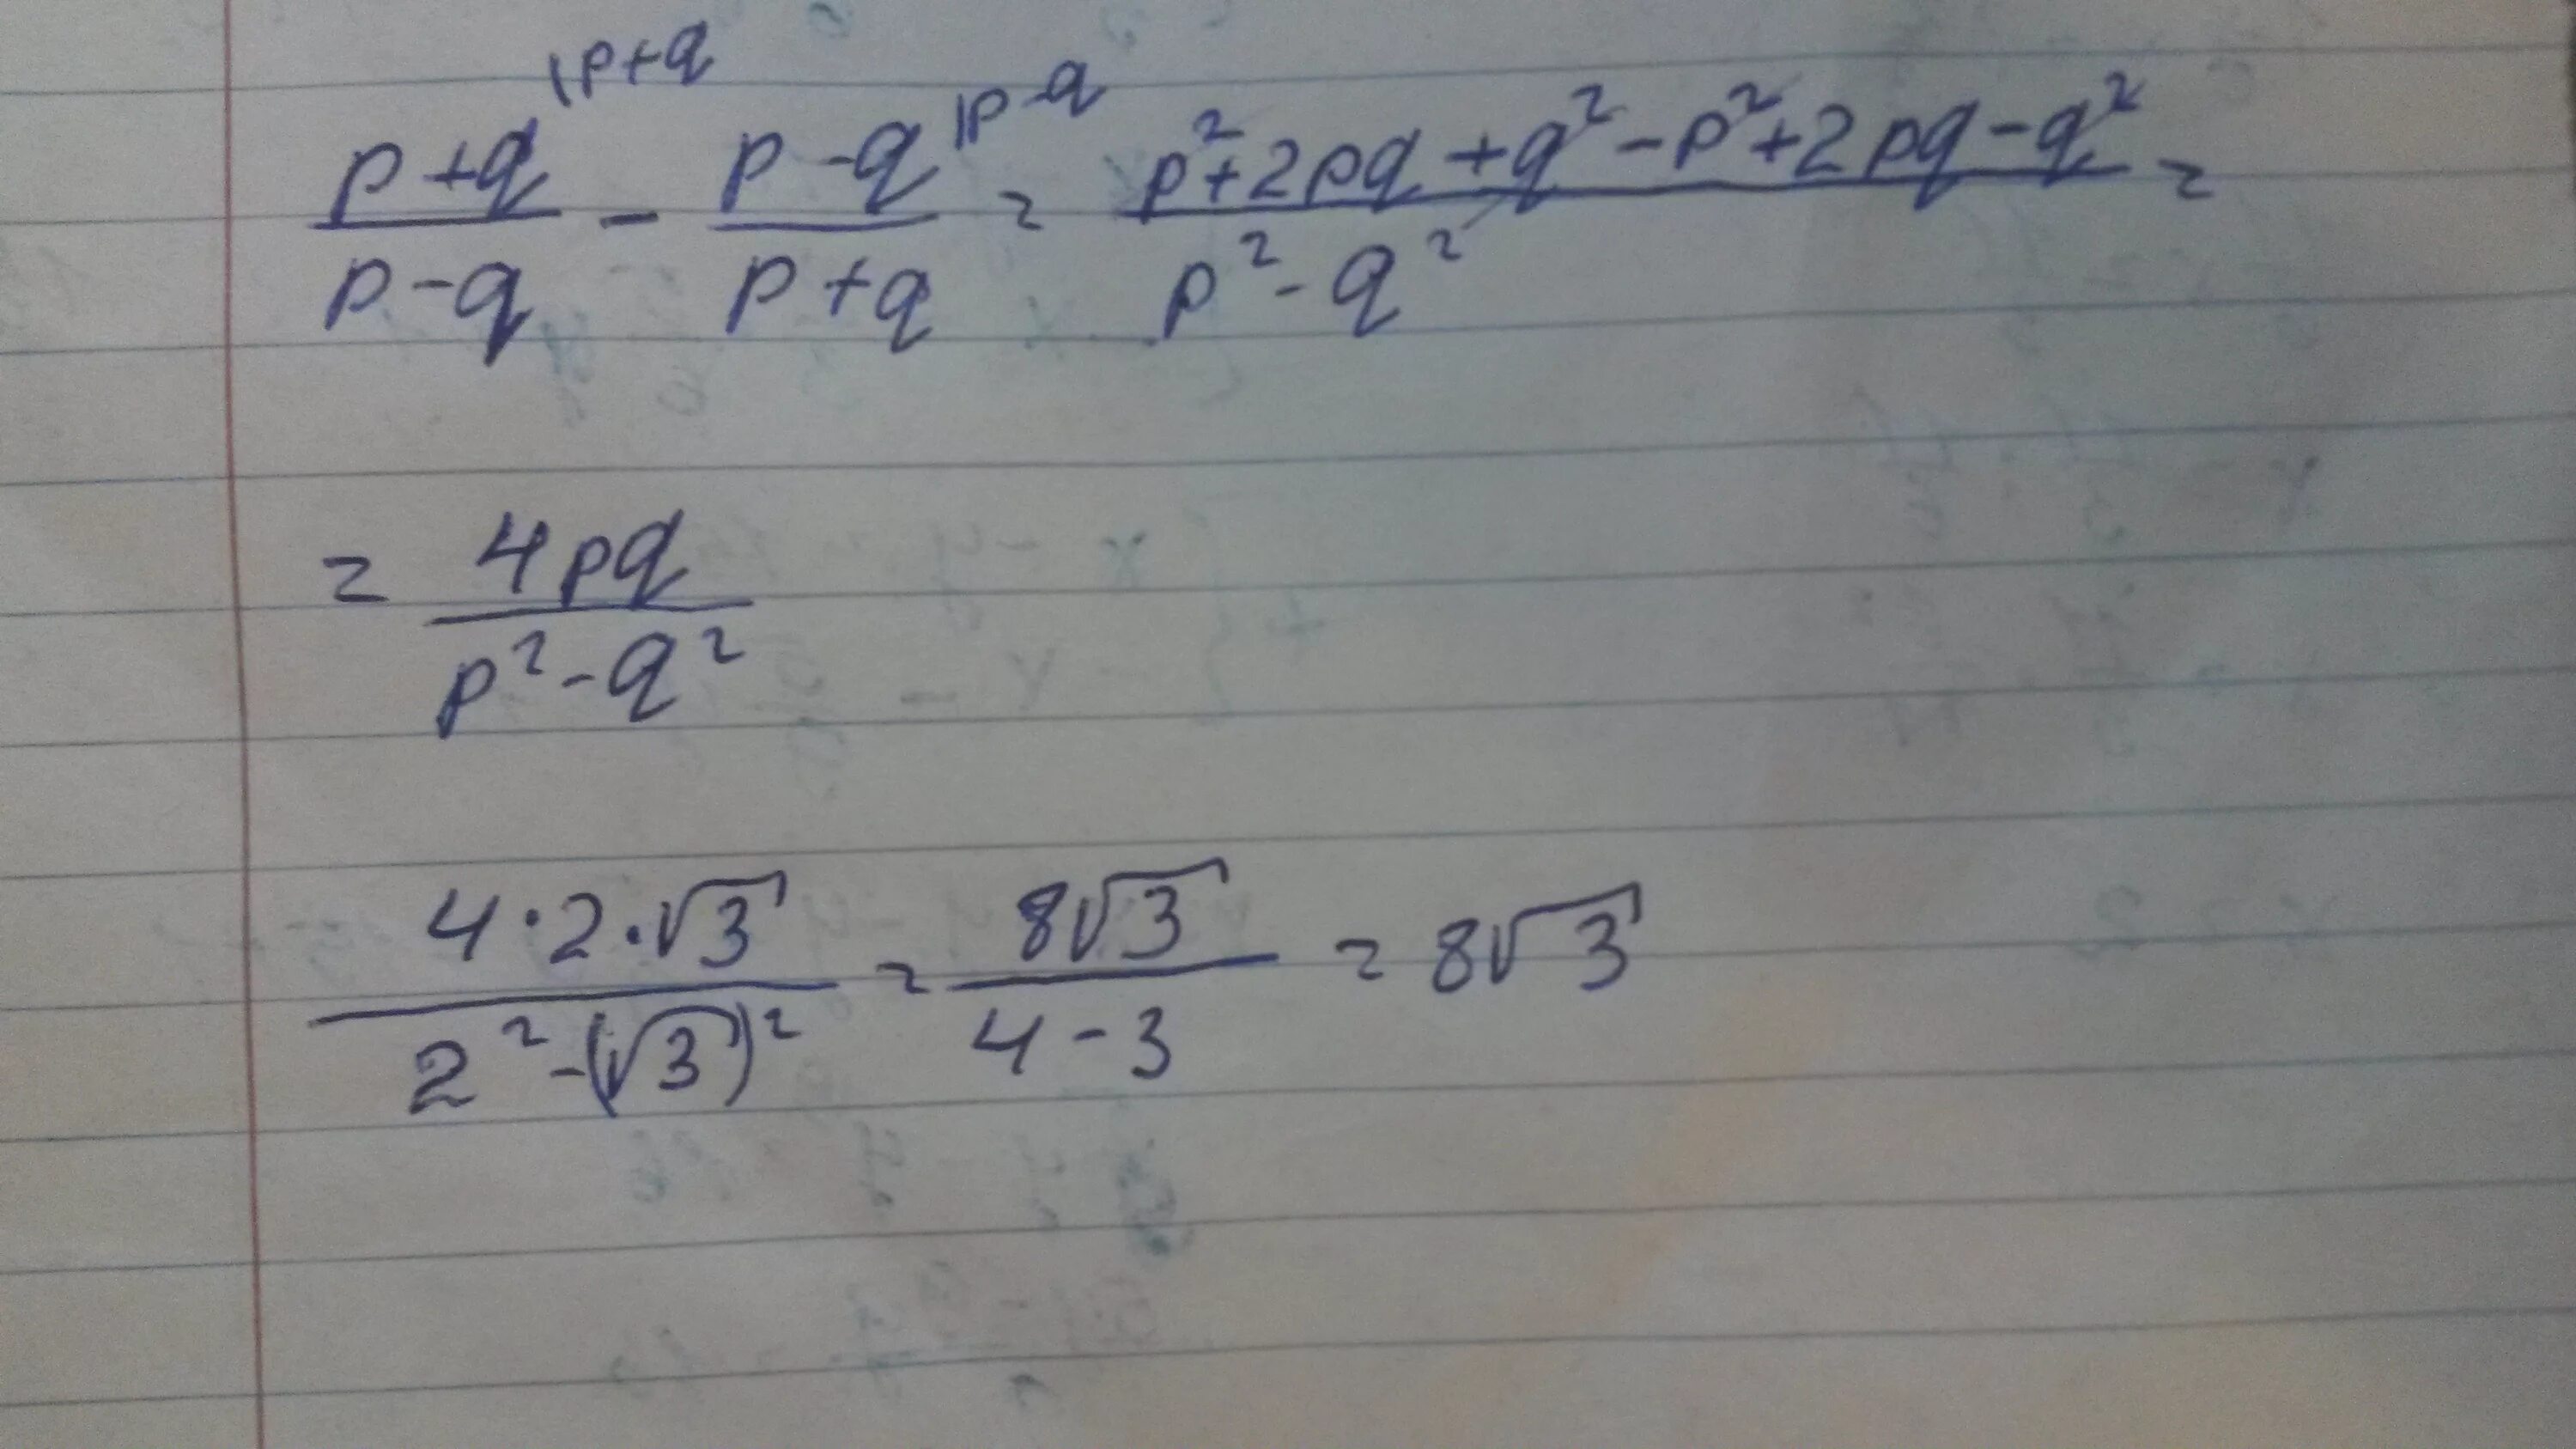 (p+q)/(p-q) |p+q - (p-q)/(p+q) |p-q = (p²+2pq+q²-p²+2pq-q²)/(p²-q²) =
= 4pq/(p²-q²)
(4·2·√3)/(2²-(√3)²) = 8√3/(4-3) = 8√3